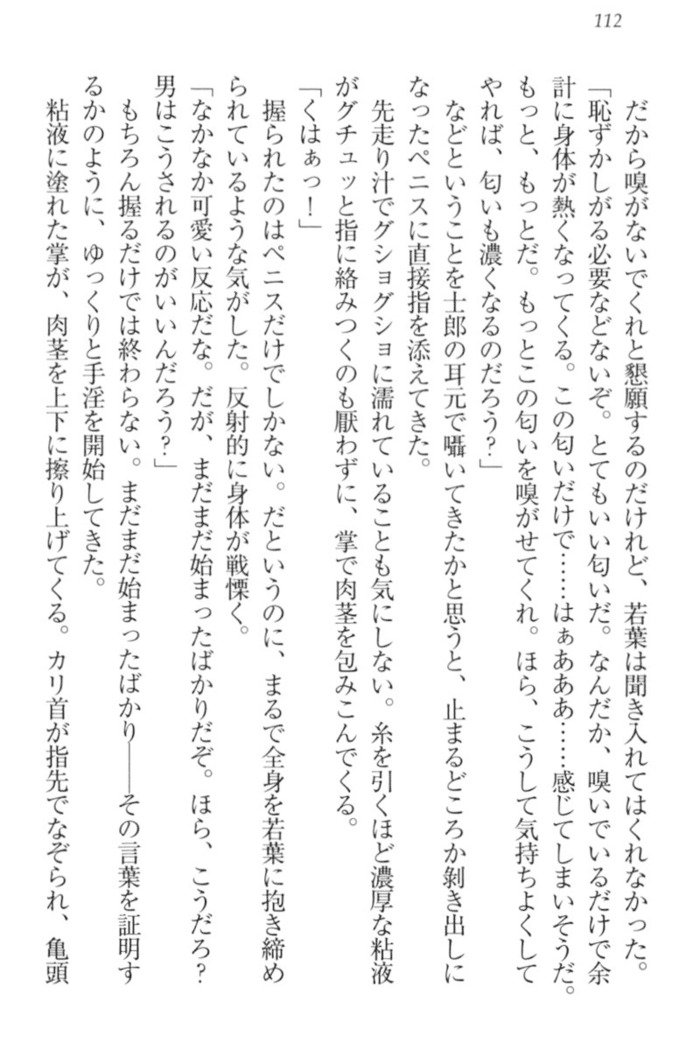 112
だから嗅がないでくれと懇願するのだけれど、若葉は聞き入れてはくれなかった。
「恥ずかしがる必要などないぞ。とてもいい匂いだ。なんだか、嗅いでいるだけで余
計に身体が熱くなってくる。この匂いだけで……はぁあああ……感じてしまいそうだ。
もっと、もっとだ。もっとこの匂いを嗅がせてくれ。ほら、こうして気持ちよくして
やれば、匂いも濃くなるのだろう？」
などということを士郎の耳元で囁いてきたかと思うと、止まるどころか剥き出しに
なったペニスに直接指を添えてきた。
先走り汁でグショグショに濡れていることも気にしない。糸を引くほど濃厚な粘液
がグチュッと指に絡みつくのも厭わずに、掌で肉茎を包みこんでくる。
「くはぁっ！」
握られたのはペニスだけでしかない。だというのに、まるで全身を若葉に抱き締め
られているような気がした。反射的に身体が戦慄く。
「なかなか可愛い反応だな。だが、まだまだ始まったばかりだぞ。ほら、こうだろ？
男はこうされるのがいいんだろう？」
もちろん握るだけでは終わらない。まだまだ始まったばかり――その言葉を証明す
るかのように、ゆっくりと手淫を開始してきた。
粘液に塗れた掌が、肉茎を上下に擦り上げてくる。カリ首が指先でなぞられ、亀頭